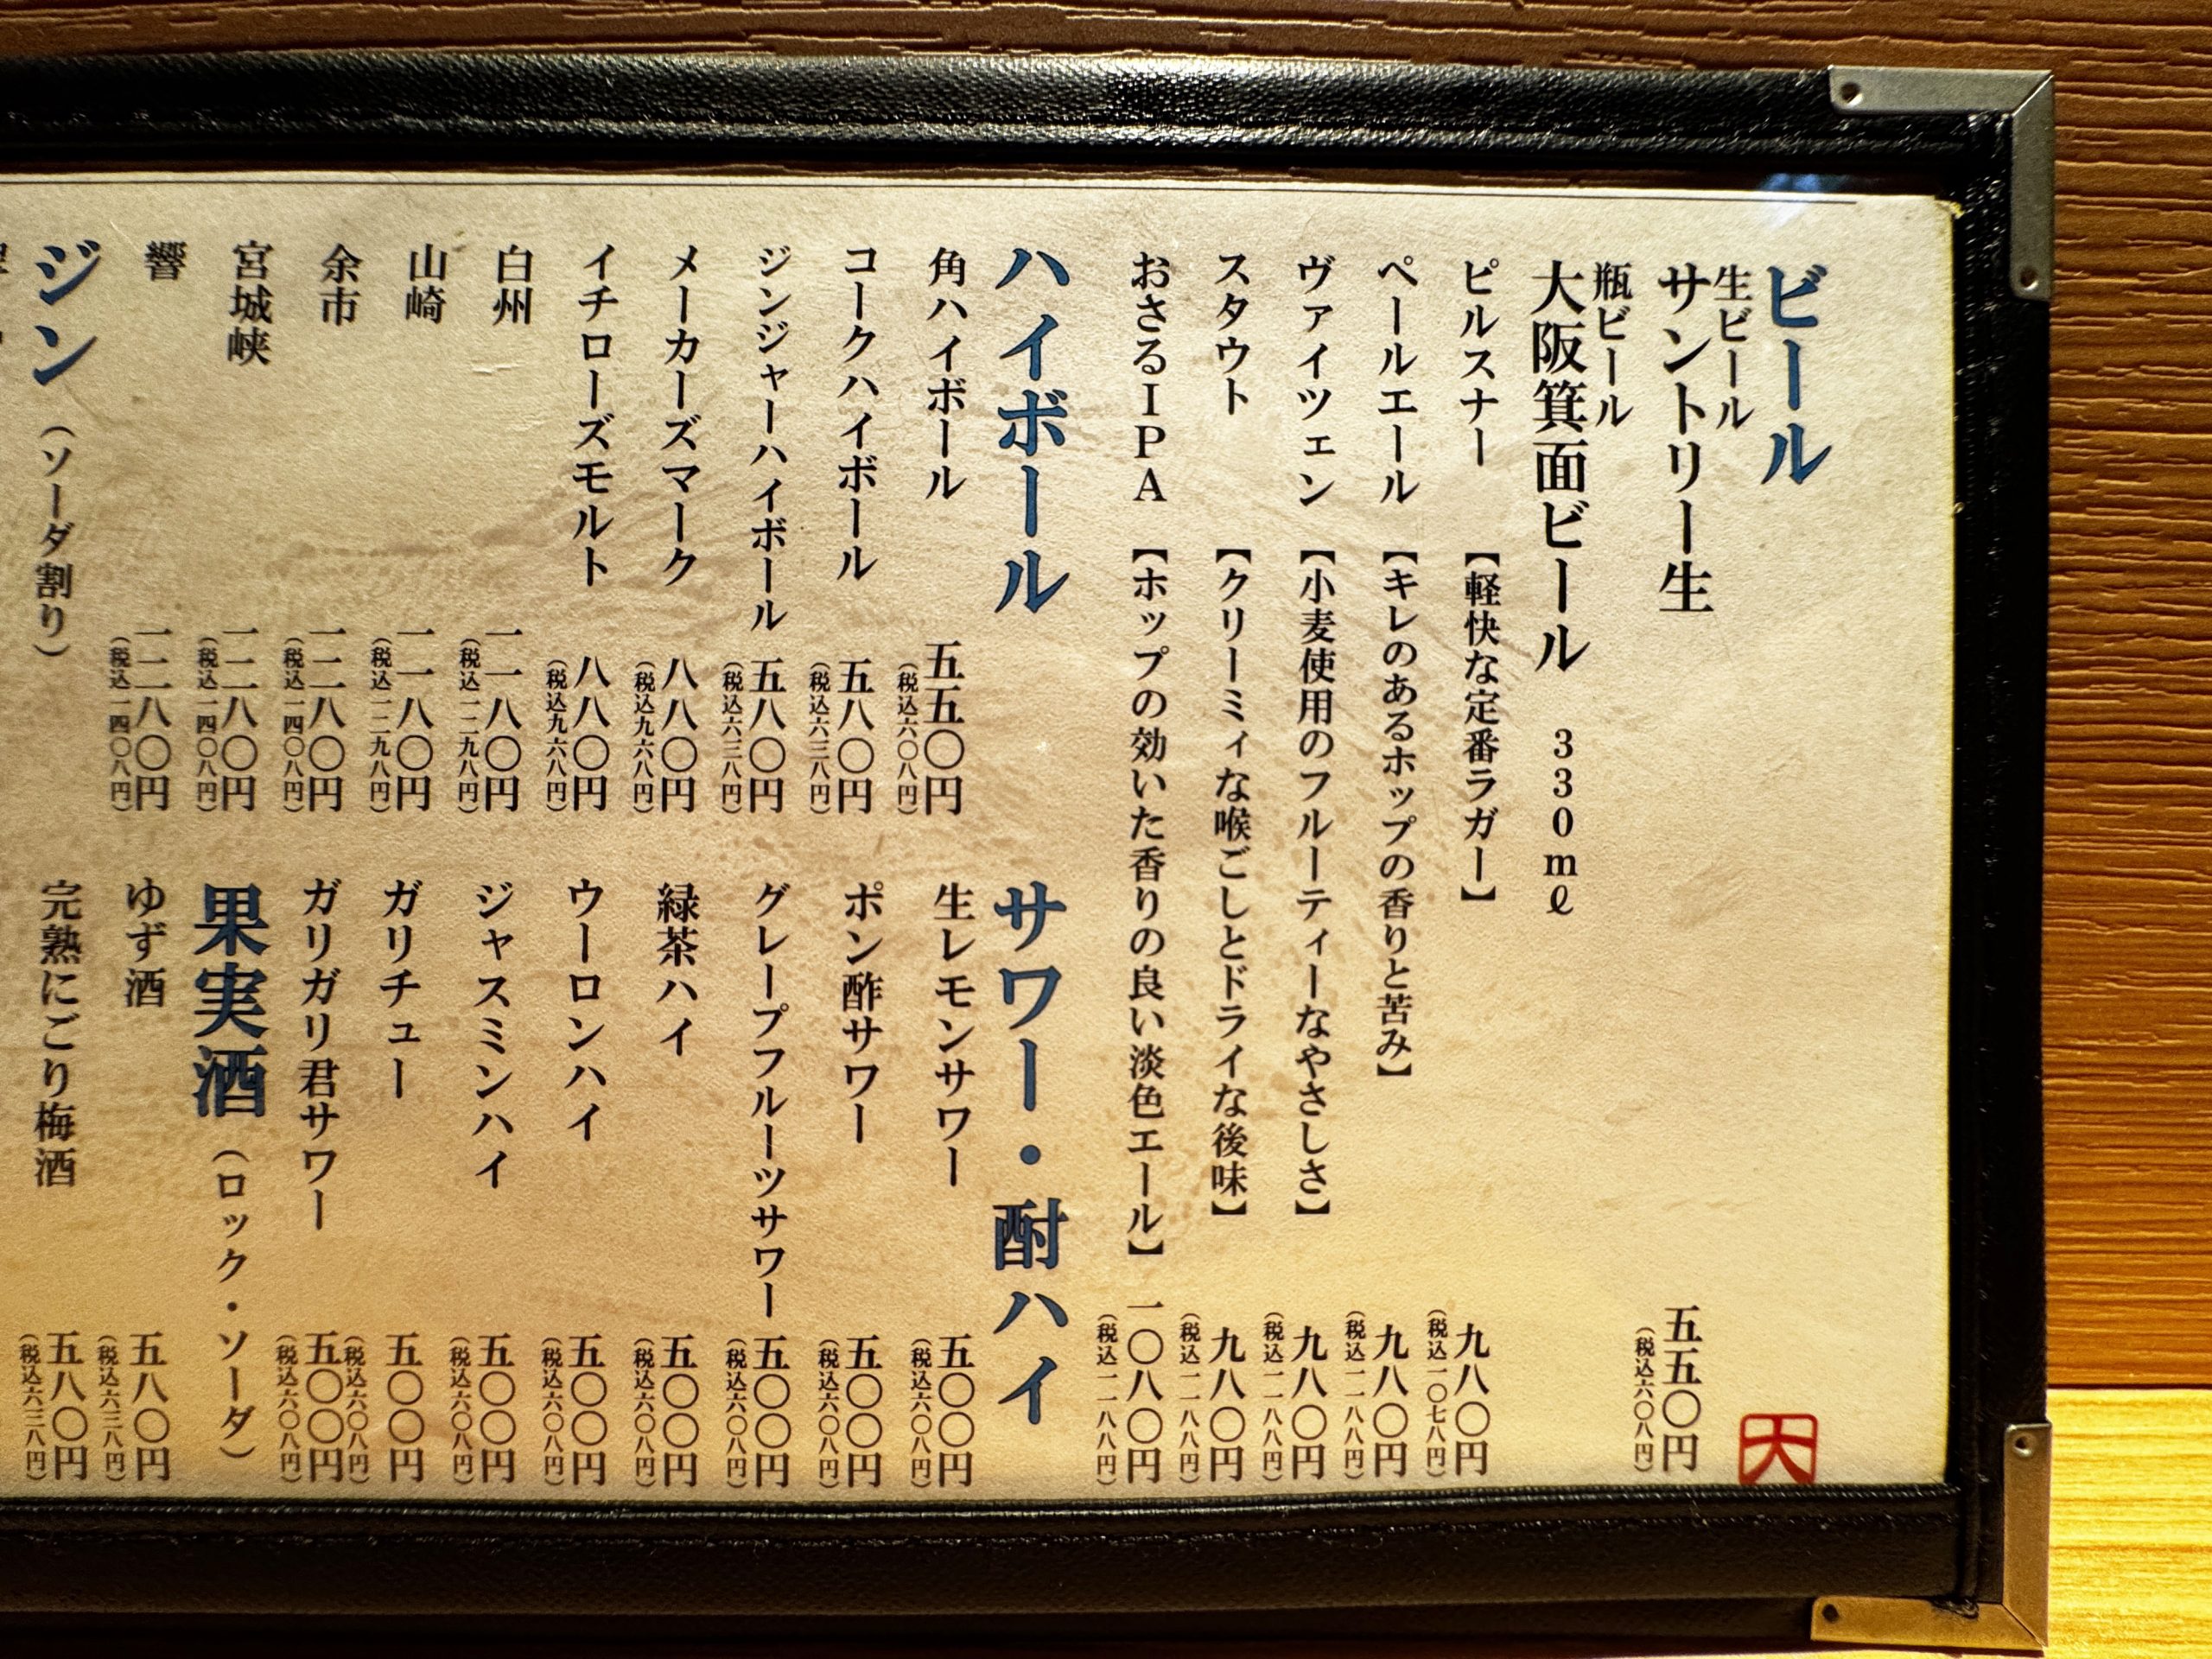 ビール
生ビール
サントリー生 五五〇円
（税込六〇八円）
瓶ビール
大阪箕面ビール 330mℓ
ピルスナー 【軽快な定番ラガー】 九八〇円
（税込一〇七八円）
ペールエール 【キレのあるホップの香りと苦み】 九八〇円
（税込一一八八円）
ヴァイツェン 【小麦使用のフルーティーなやさしさ】 九八〇円
（税込一一八八円）
スタウト 【クリーミィな喉ごしとドライな後味】 九八〇円
（税込一一八八円）
おさるIPA 【ホップの効いた香りの良い淡色エール】 一〇八〇円
（税込一一八八円）
ハイボール
角ハイボール 五五〇円
（税込六〇八円）
コークハイボール 五八〇円
（税込六三八円）
ジンジャーハイボール 五八〇円
（税込六三八円）
メーカーズマーク 八八〇円
（税込九六八円）
イチローズモルト 八八〇円
（税込九六八円）
白州 一一八〇円
（税込一二九八円）
山崎 一一八〇円
（税込一二九八円）
余市 一二八〇円
（税込一四〇八円）
宮城峡 一二八〇円
（税込一四〇八円）
響 一二八〇円
（税込一四〇八円）
ジン（ソーダ割り）
サワー・酎ハイ
生レモンサワー 五〇〇円
（税込六〇八円）
ポン酢サワー 五〇〇円
（税込六〇八円）
グレープフルーツサワー 五〇〇円
（税込六〇八円）
緑茶ハイ 五〇〇円
（税込六〇八円）
ウーロンハイ 五〇〇円
（税込六〇八円）
ジャスミンハイ 五〇〇円
（税込六〇八円）
ガリチュー 五〇〇円
（税込六〇八円）
ガリガリ君サワー 五〇〇円
（税込六〇八円）
果実酒（ロック・ソーダ）
ゆず酒 五八〇円
（税込六三八円）
完熟にごり梅酒 五八〇円
（税込六三八円）
大